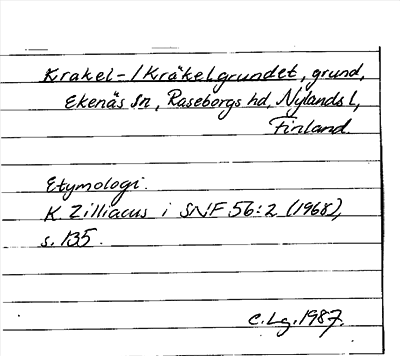 Krakel-/Kräkelgrundet, grund,
Ekenäs sn, Raseborgs hd, Nylands l,
Finland.
Etymologi.
K Zilliacus i SNF 56:2 (1968),
s. 135.
C.Lg.1987.